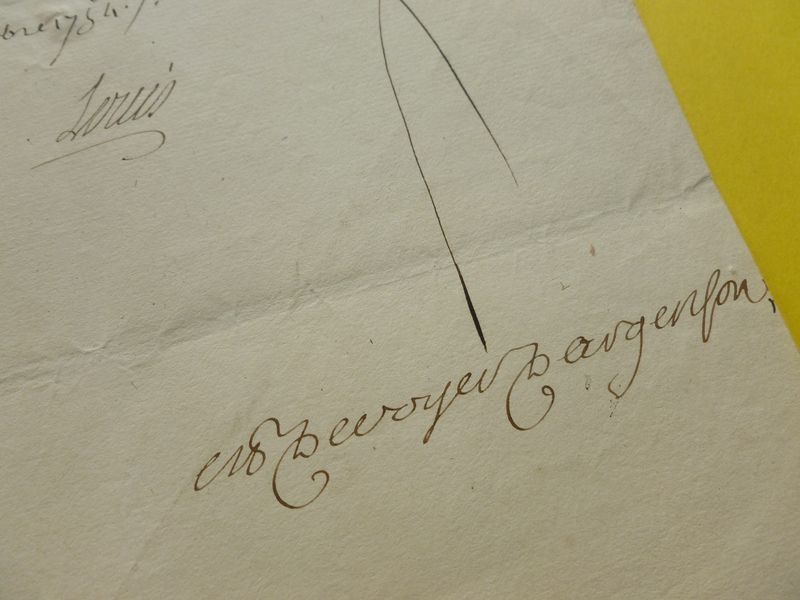 bre 1754.
Louis
M Devoyer Dargenson